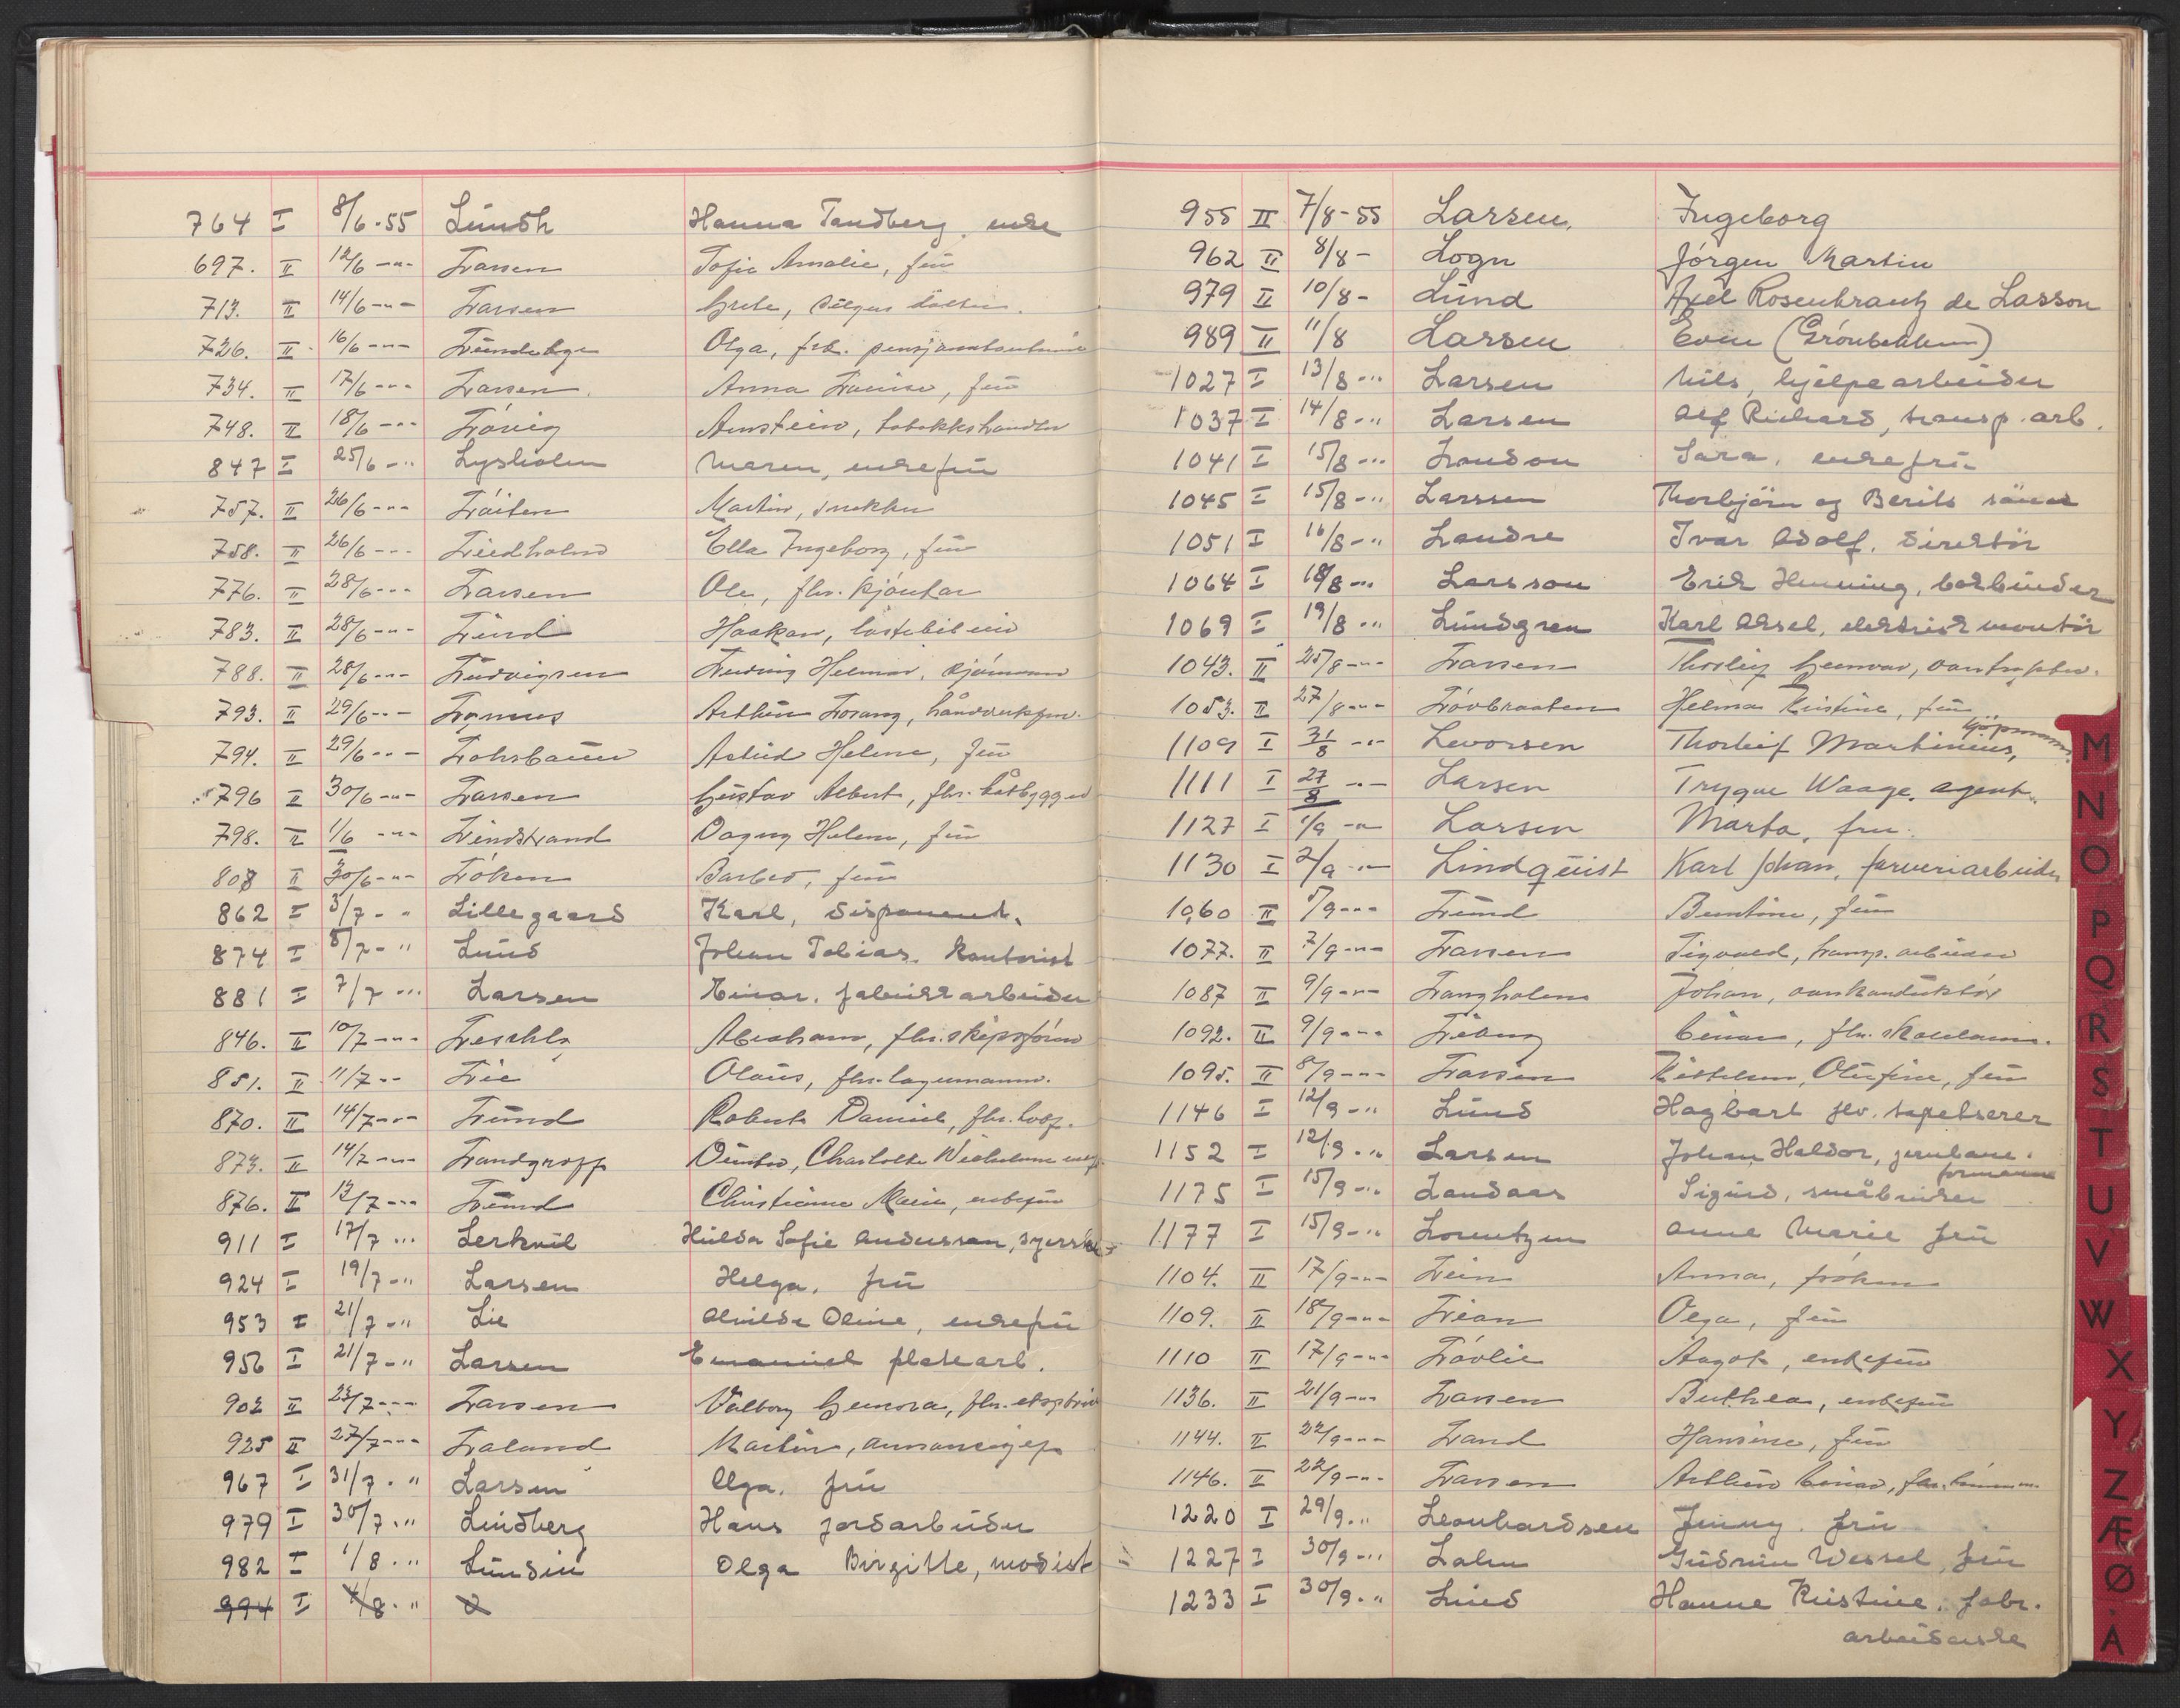 764 I 8/6-55 Lundh Hanna Tandberg, enke
697. II 12/6 -"- Larsen Sofie Amalie, frü
713. II 14/6 -"- Larsen Grete,
726. II 16/6 -"- Olga, frk.
734. II 17/6 -"- Larsen Anna Louise, frü
748. II 18/6 -"- Lövig Arnstein, tobakkshandler
847 I 25/6 -" Lysholm Maren, enkefrü
757. II 26/6 -"- Löiten Martin, snekker
758. II 26/6 -"- Liedholm Ella Ingeborg, frü
776. II 28/6 -"- Larsen Ole, fhv. kjöusar
783. II 28/6 -"- Lünd Haakon, lastebileier
788. II 28/6 -"- Lüdvigsen Ludvig Helmar, sjömann
793. II 29/6 -"- Arthür Lorang,
794. II 29/6 -"- Lohrbauer Astrid Helene, frü
796 II 30/6 -"- Larsen Güstav Albert, fhv. båtbygger
798. II 1/6 -"- Lindstrand Dagny Helene, frü
808 II 30/6 -"- Löken Barbro, frü
862 I 3/7 - " Lillegaard Karl, disponent.
874 I 5/7 - " Lünd Johan Tobias. kontorist
881 I 7/7 -" Larsen Einar. fabrikkarbeider
846. II 10/7 -"- Abraham, fhv. skipsförer
851. II 11/7 -"- Lie Olaüs, fhv. lagermann.
870. II 14/7 -"- Lünd Robert Daniel, fhv.
873. II 14/7 -"- Landgraff Charlotte Wilhelmine
876. II 12/7 -"- Lünd Christiane Marie, enkefrü
911 I 17/7 -" Lerkvil Hülda Sofie Anderssen, syerske
924 I 19/7 -" Larsen Helga. frü
953 I 21/7 -" Lie Alvilde Oline, enkefrü
956 I 21/7 -" Larsen Emanuel platearb.
902 II 23/7 -"- Larsen Valborg Gunvora, fhv.
925 II 27/7 -"- Laland Martin,
967 I 31/7 . " Larsen Olga. frü
979 I 30/7 . " Lindberg Hans jordarbeider
982 I 1/8 . " Lündin Olga Birgitte, modist
994 I 4/8 . "
955 II 7/8-55 Larsen, Ingeborg
962 II 8/8 - Logn Jörgen Martin
979 II 10/8 - Lünd Axel Rosenkrantz de Lasson
989 II 11/8 Larsen Even (Grönbekken)
1027 I 13/8 -" Larsen Nils, hjelpearbeider
1037 I 14/8 -" Larsen Alf Richard, transp. arb.
1041 I 15/8 -" London Sara. enkefrü
1045 I 15/8 -" Larssen Thorbjörn og Berits sönn
1051 I 16/8 -" Landre Ivar Adolf. direktör
1064 I 18/8 -" Larsson Erik Henning, bokbinder
1069 I 19/8 -" Lündgren Karl Aksel, elektrisk montör
1043. II 25/8 -"- Larsen Thorleif Gunvar,
1053. II 27/8 -"- Lövbraaten Helma Kristine, frü
1109 I 31/8 -"- Levorsen Thorleif Martinius, kjöpmann
1111 I 27/8 -"- Larsen Trygve Waage. agent.
1127 I 1/9 -"- Larsen Marta, fru.
1130 I 2/9 -"- Lindquist Karl Johan, farveriarbeider
1060 II 5/9 -"- Lünd Berntine, frü
1077. II 7/9 -"- Larsen Sigvald, transp. arbeider
1087 II 9/9 -"- Langholm Johan,
1092. II 9/9 -"- Einar, fhv.
1095. II 8/9 -"- Larsen Olüfine, frü
1146 I 12/9 -" Lünd Hagbart fhv. tapetserer
1152 I 12/9 . " Larsen Johan Haldor, jernbane-
formann
1175 I 15/9 -" Landaas Sigurd, småbruker
1177 I 15/9 -" Lorentzen Anne Marie frü
1104. II 17/9 -"- Lein Anna, fröken
1109. II 18/9 -"- Lian Olga, frü
1110 II 17/9 -"- Lövlie Aagot, enkefrü
1136. II 21/9 -"- Larsen Buthea, enkefrü
1144. II 22/9 -"- Land Hansine, frü
1146. II 22/9 -"- Larsen Arthür Einar,
1220 I 29/9 . " Leonhardsen Jenny. frü
1227 I 30/9 -" Lahn Güdrün Wessel, frü
1233 I 30/9 . " Lünd Hanne Kristine. fabr.
arbeiderske
M
N
O
P
Q
R
S
T
U
V
W
X
Y
Z
Æ
Ø
Å